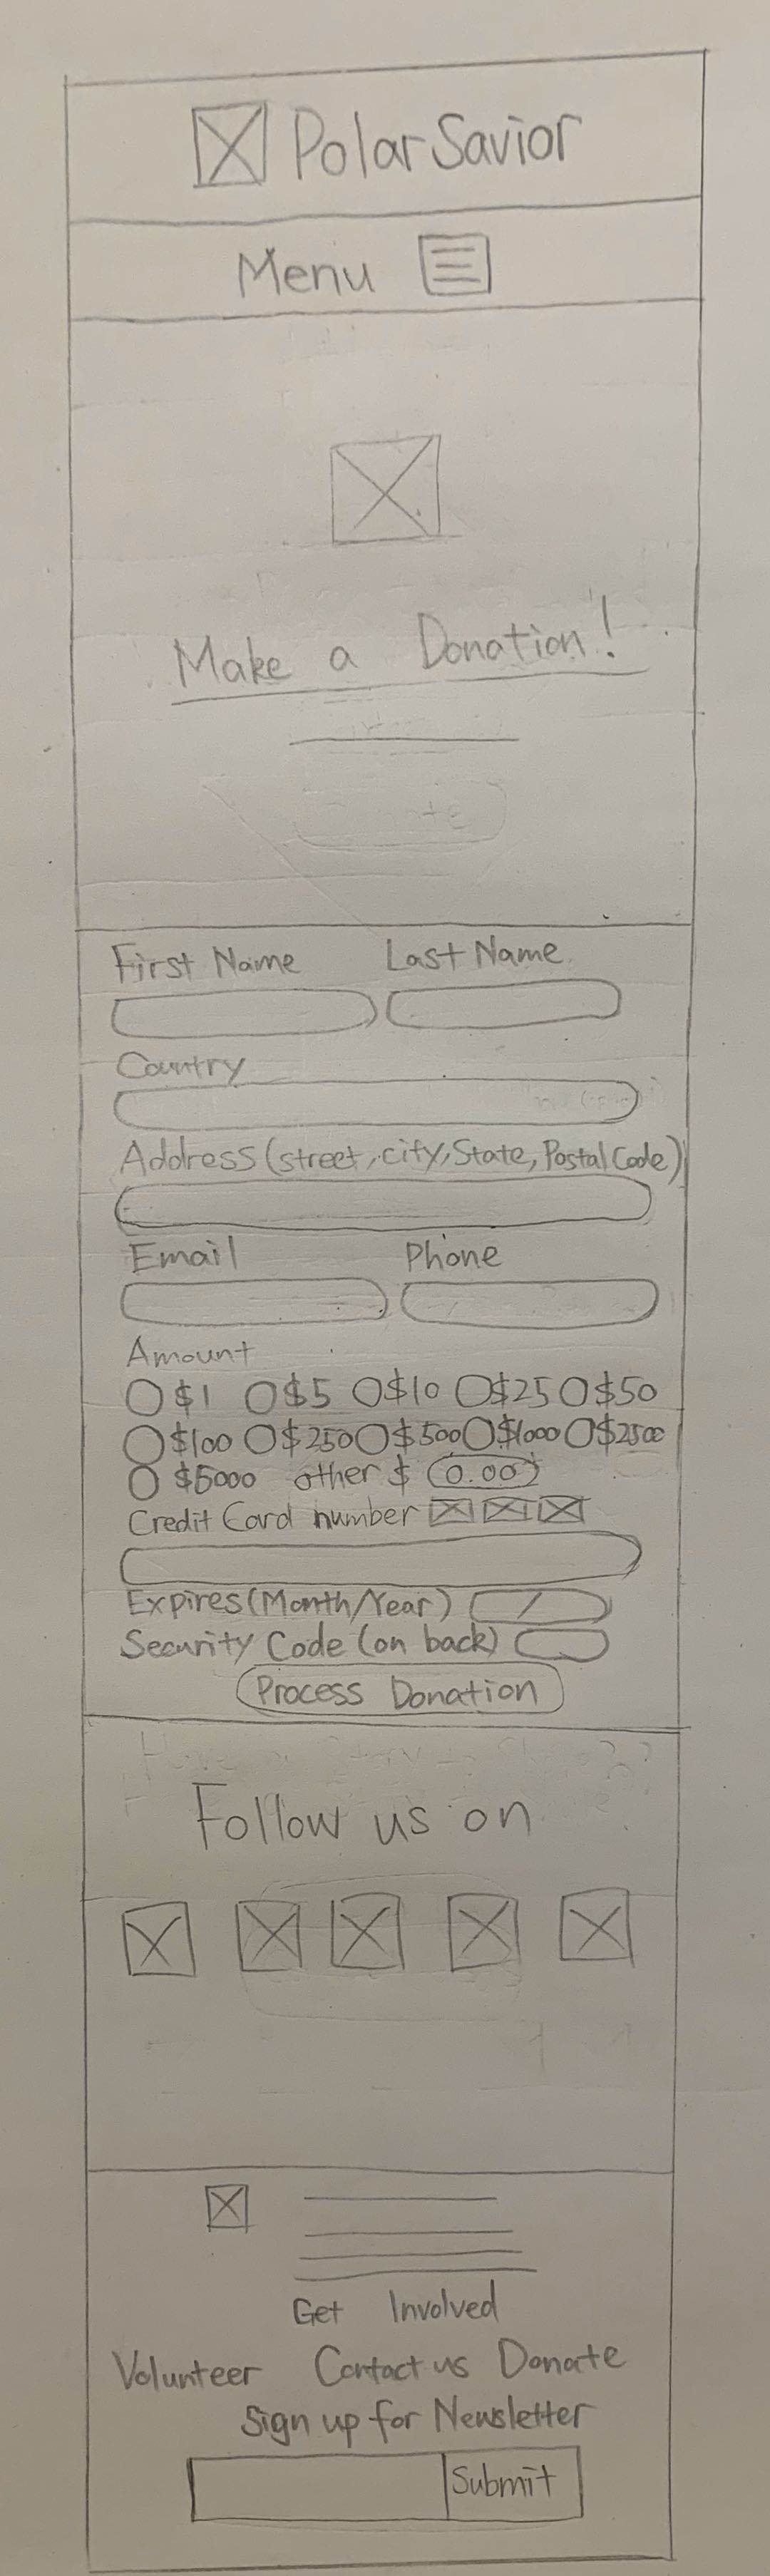 Polar Savior
Menu
Make a Donation!
First Name Last Name
Country
Address (street, city, State, Postal Code)
Email Phone
Amount
$1 $5 $10 $25 $50
$100 $250 $500 $1000 $2500
$5000 other $ 0.00
Credit Card number
Expires (Month/Year) /
Security Code (on back)
Process Donation
Follow us on
Get Involved
Volunteer Contact us Donate
Sign up for Newsletter
Submit